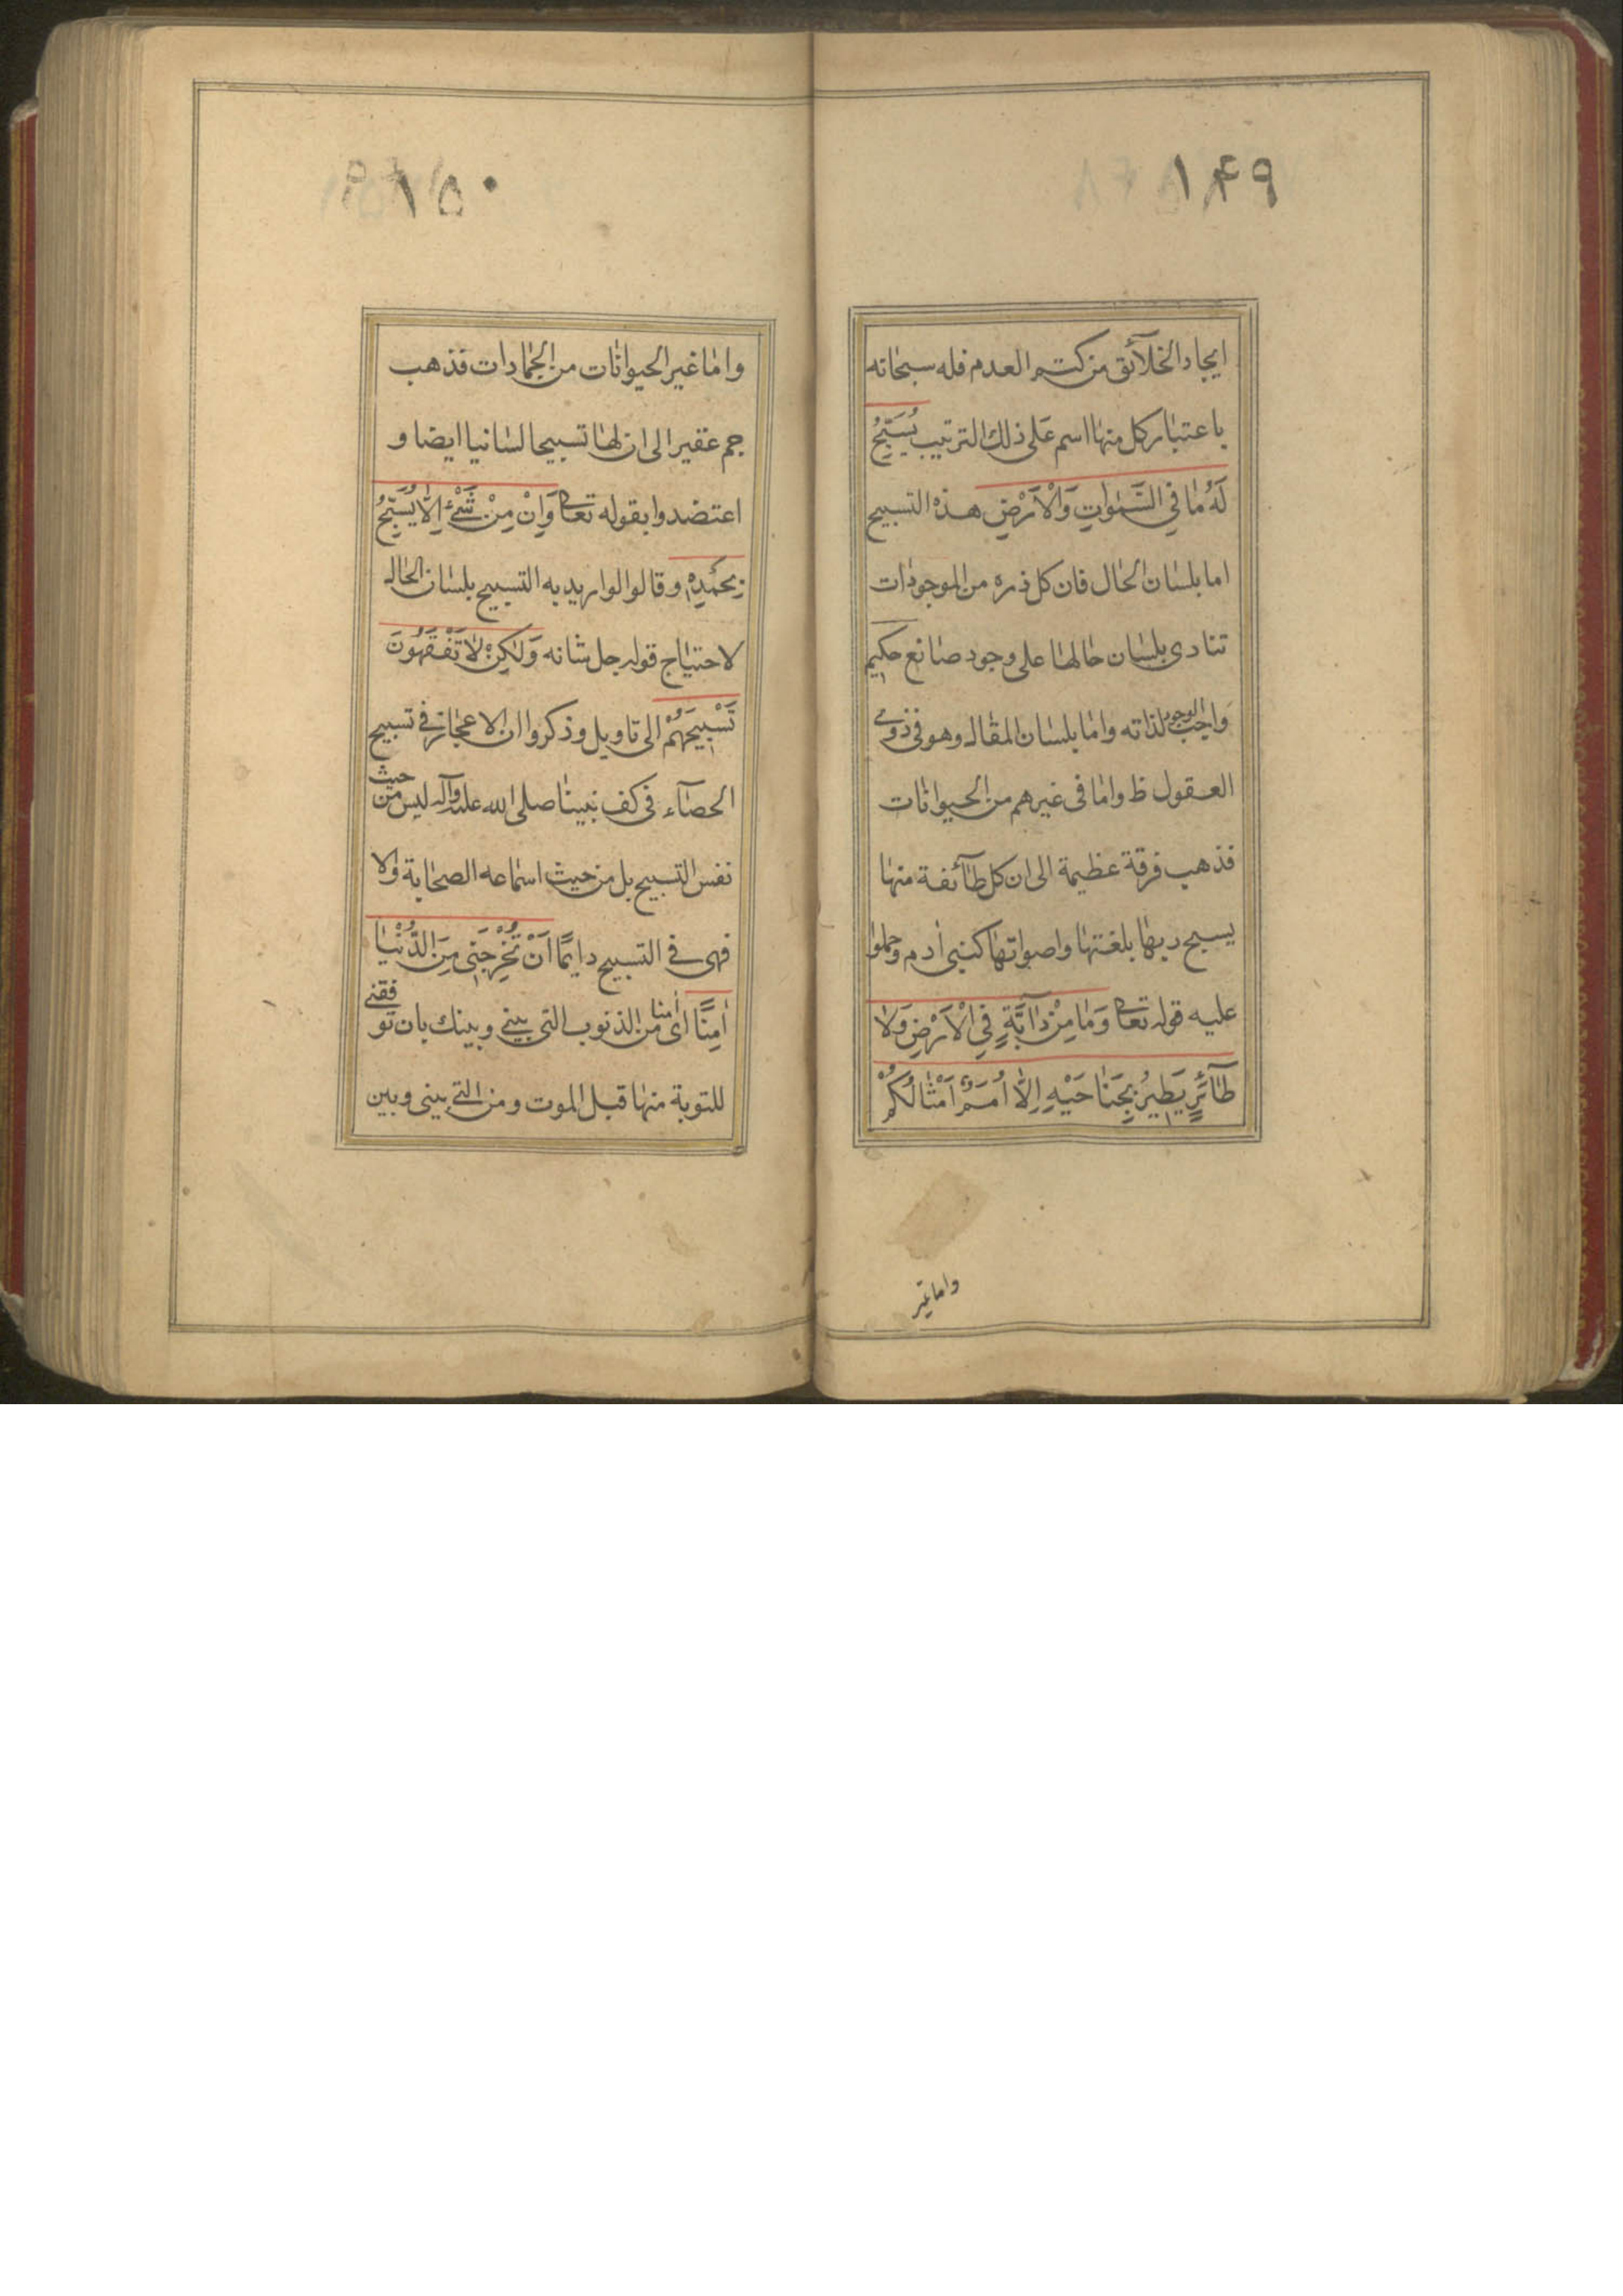 ۱۴۹
ايجاد الخلآئق من كتم العدم فله سبحانه
باعتبار كل منها اسم على ذلك الترتيب يُسَبِّحُ
لَهُ مٰا فِي السَّمٰوٰاتِ وَالْاَرْضِ هذه التسبيح
اما بلسان الحال فان كل ذره من الموجودات
تنادى بلسان حالها على وجود صانع حكيم
واجب الوجود لذاته واما بلسان المقال وهو فى ذوى
العقول ظ واما فى غيرهم من الحيوانات
فذهب فرقة عظيمة الى ان كل طآئفة منها
يسبح ربها بلغتها واصواتها كبنى ادم وحملوا
عليه قوله تعالى وَمٰا مِنْ دٰآبَّةٍ فِي الْاَرْضِ وَلٰا
طٰآئِرٍ يَطيرُ بِجَنٰاحَيْهِ اِلّٰا اُمَمٌ اَمْثٰالُكُمْ
واما غير
۱۵۰
واما غير الحيوانات من الجمادات فذهب
جم غفير الى ان لها تسبيحا لسانيا ايضا و
اعتضدوا بقوله تعالى وَاِنْ مِنْ شَىْءٍ اِلّٰا يُسَبِّحُ
بِحَمْدِهِ وقالوا لو اريد به التسبيح بلسان الحال
لاحتياج قوله جل شانه وَلٰكِنْ لٰا تَفْقَهُونَ
تَسْبيحَهُمْ الى تاويل وذكروا ان الاعجاز فى تسبيح
الحصآء فى كف نبينا صلى الله عليه وآله ليس من حيث
نفس التسبيح بل من حيث اسماعه الصحابة والا
فهى فى التسبيح دايمًا اَنْ تُخْرِجَنى مِنَ الدُّنْيٰا
اٰمِنًا اى اٰمنا من الذنوب التى بينى وبينك بان توفقنى
للتوبة منها قبل الموت ومن التى بينى وبين